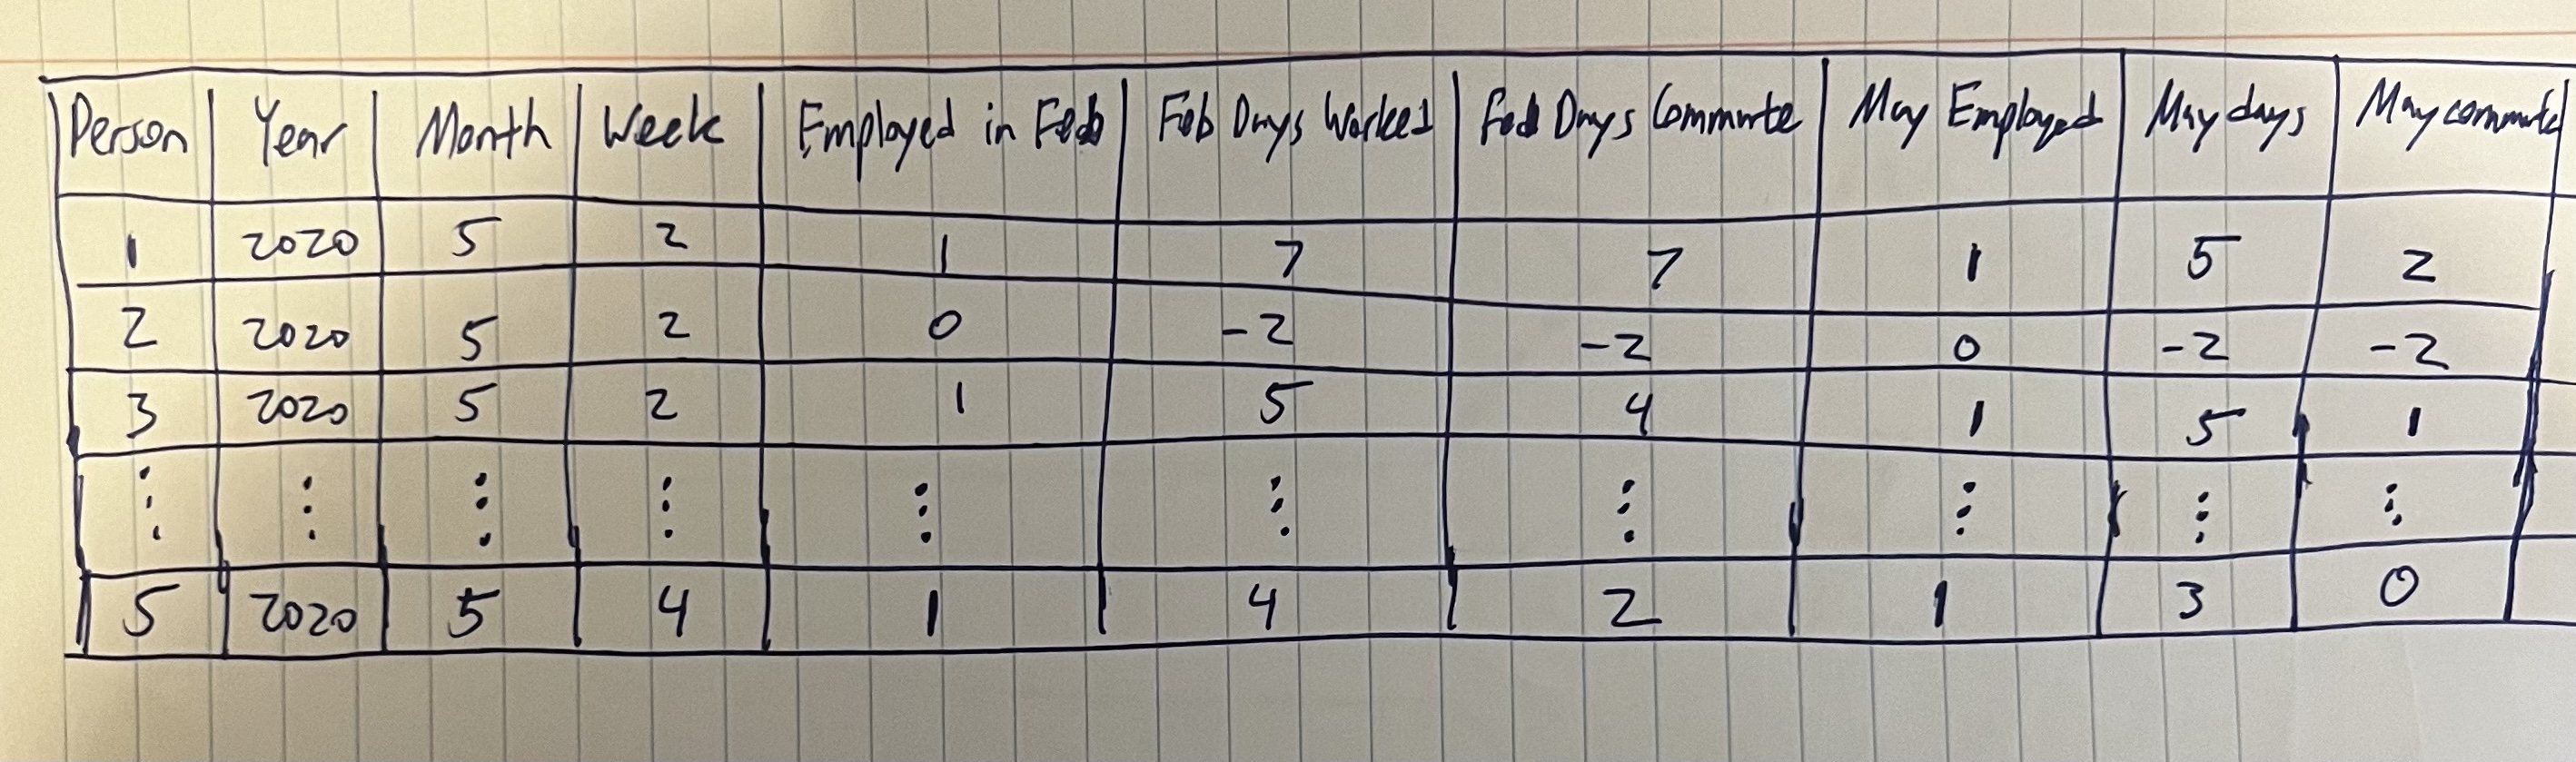 Person Year Month Week Employed in Feb Feb Days Worked Feb Days Commute May Employed May days May commute
1 2020 5 2 1 7 7 1 5 2
2 2020 5 2 0 -2 -2 0 -2 -2
3 2020 5 2 1 5 4 1 5 1
⋮ ⋮ ⋮ ⋮ ⋮ ⋮ ⋮ ⋮ ⋮ ⋮
5 2020 5 4 1 4 2 1 3 0